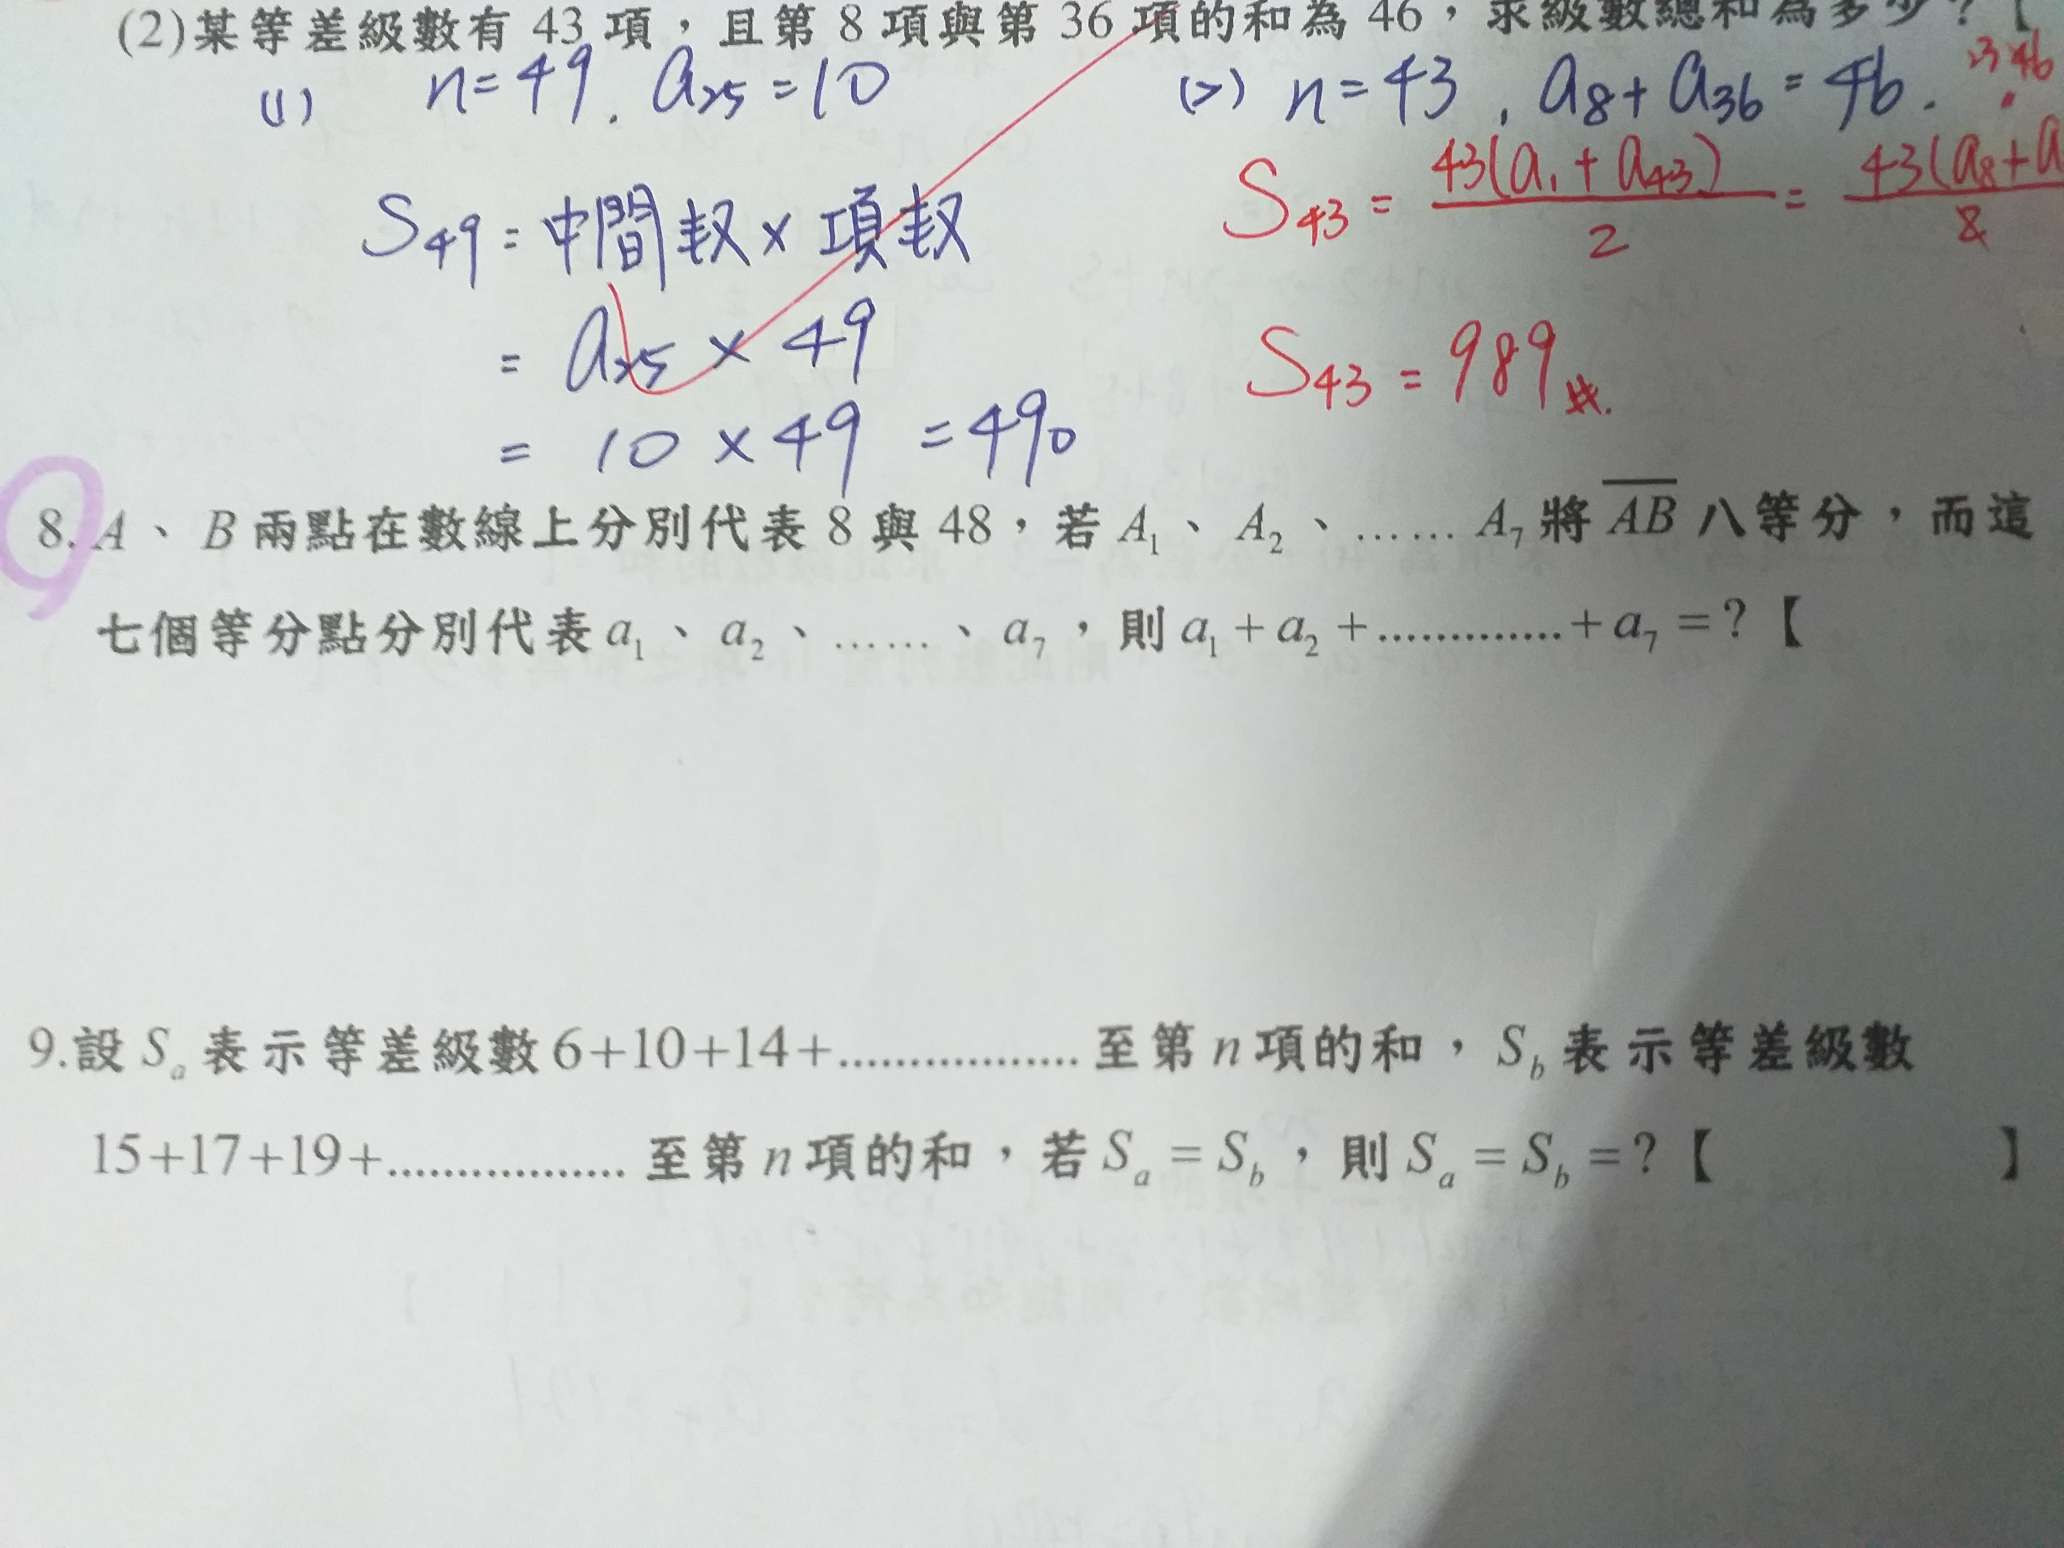 (2)某等差級數有 43 項，且第 8 項與第 36 項的和為 46，求級數總和為多少？【
(1) n=49. a25=10
S49=中間數×項數
=a25×49
=10×49 =490
(2) n=43, a8+a36=46.
S43=43(a1+a43)/2=43(a8+a/8
S43=989
8. A、B 兩點在數線上分別代表 8 與 48，若 A1、A2、……A7 將 AB 八等分，而這
七個等分點分別代表 a1、a2、……、a7，則 a1+a2+.............+a7=?【
9.設 Sa 表示等差級數 6+10+14+................. 至第 n 項的和，Sb 表示等差級數
15+17+19+................. 至第 n 項的和，若 Sa = Sb，則 Sa = Sb =?【 】